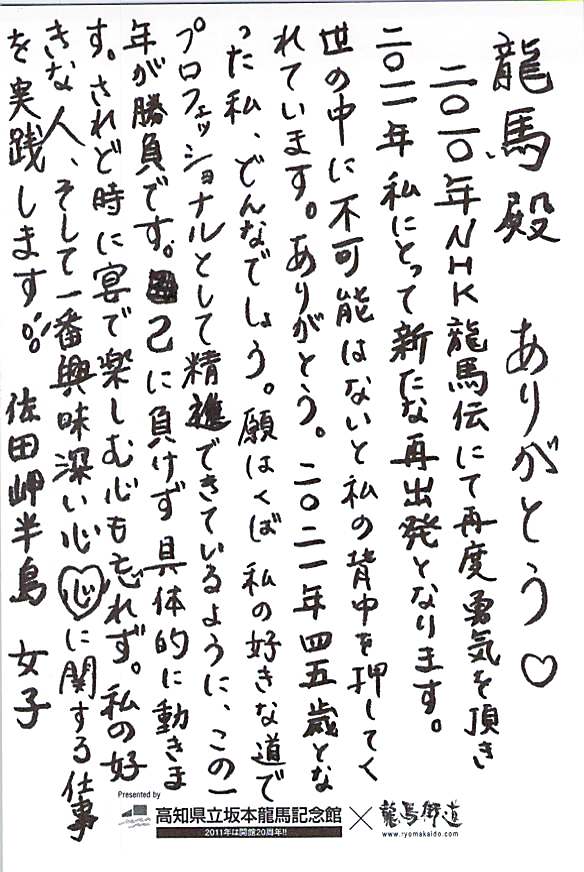 龍馬殿 ありがとう♡
二〇一〇年NHK龍馬伝にて再度勇気を頂き
二〇一一年 私にとって新たな再出発となります。
世の中に不可能はないと私の背中を押してく
れています。ありがとう。二〇二一年四五歳とな
った私、どんなでしょう。願はくば私の好きな道で
プロフェッショナルとして精進できているように、この一
年が勝負です。己に負けず具体的に動きま
す。されど時に宴で楽しむ心も忘れず。私の好
きな人、そして一番興味深い心 心に関する仕事
を実践します!! 佐田岬半島 女子
Presented by
高知県立坂本龍馬記念館 × 龍馬街道
2011年は開館20周年!!
www.ryomakaido.com